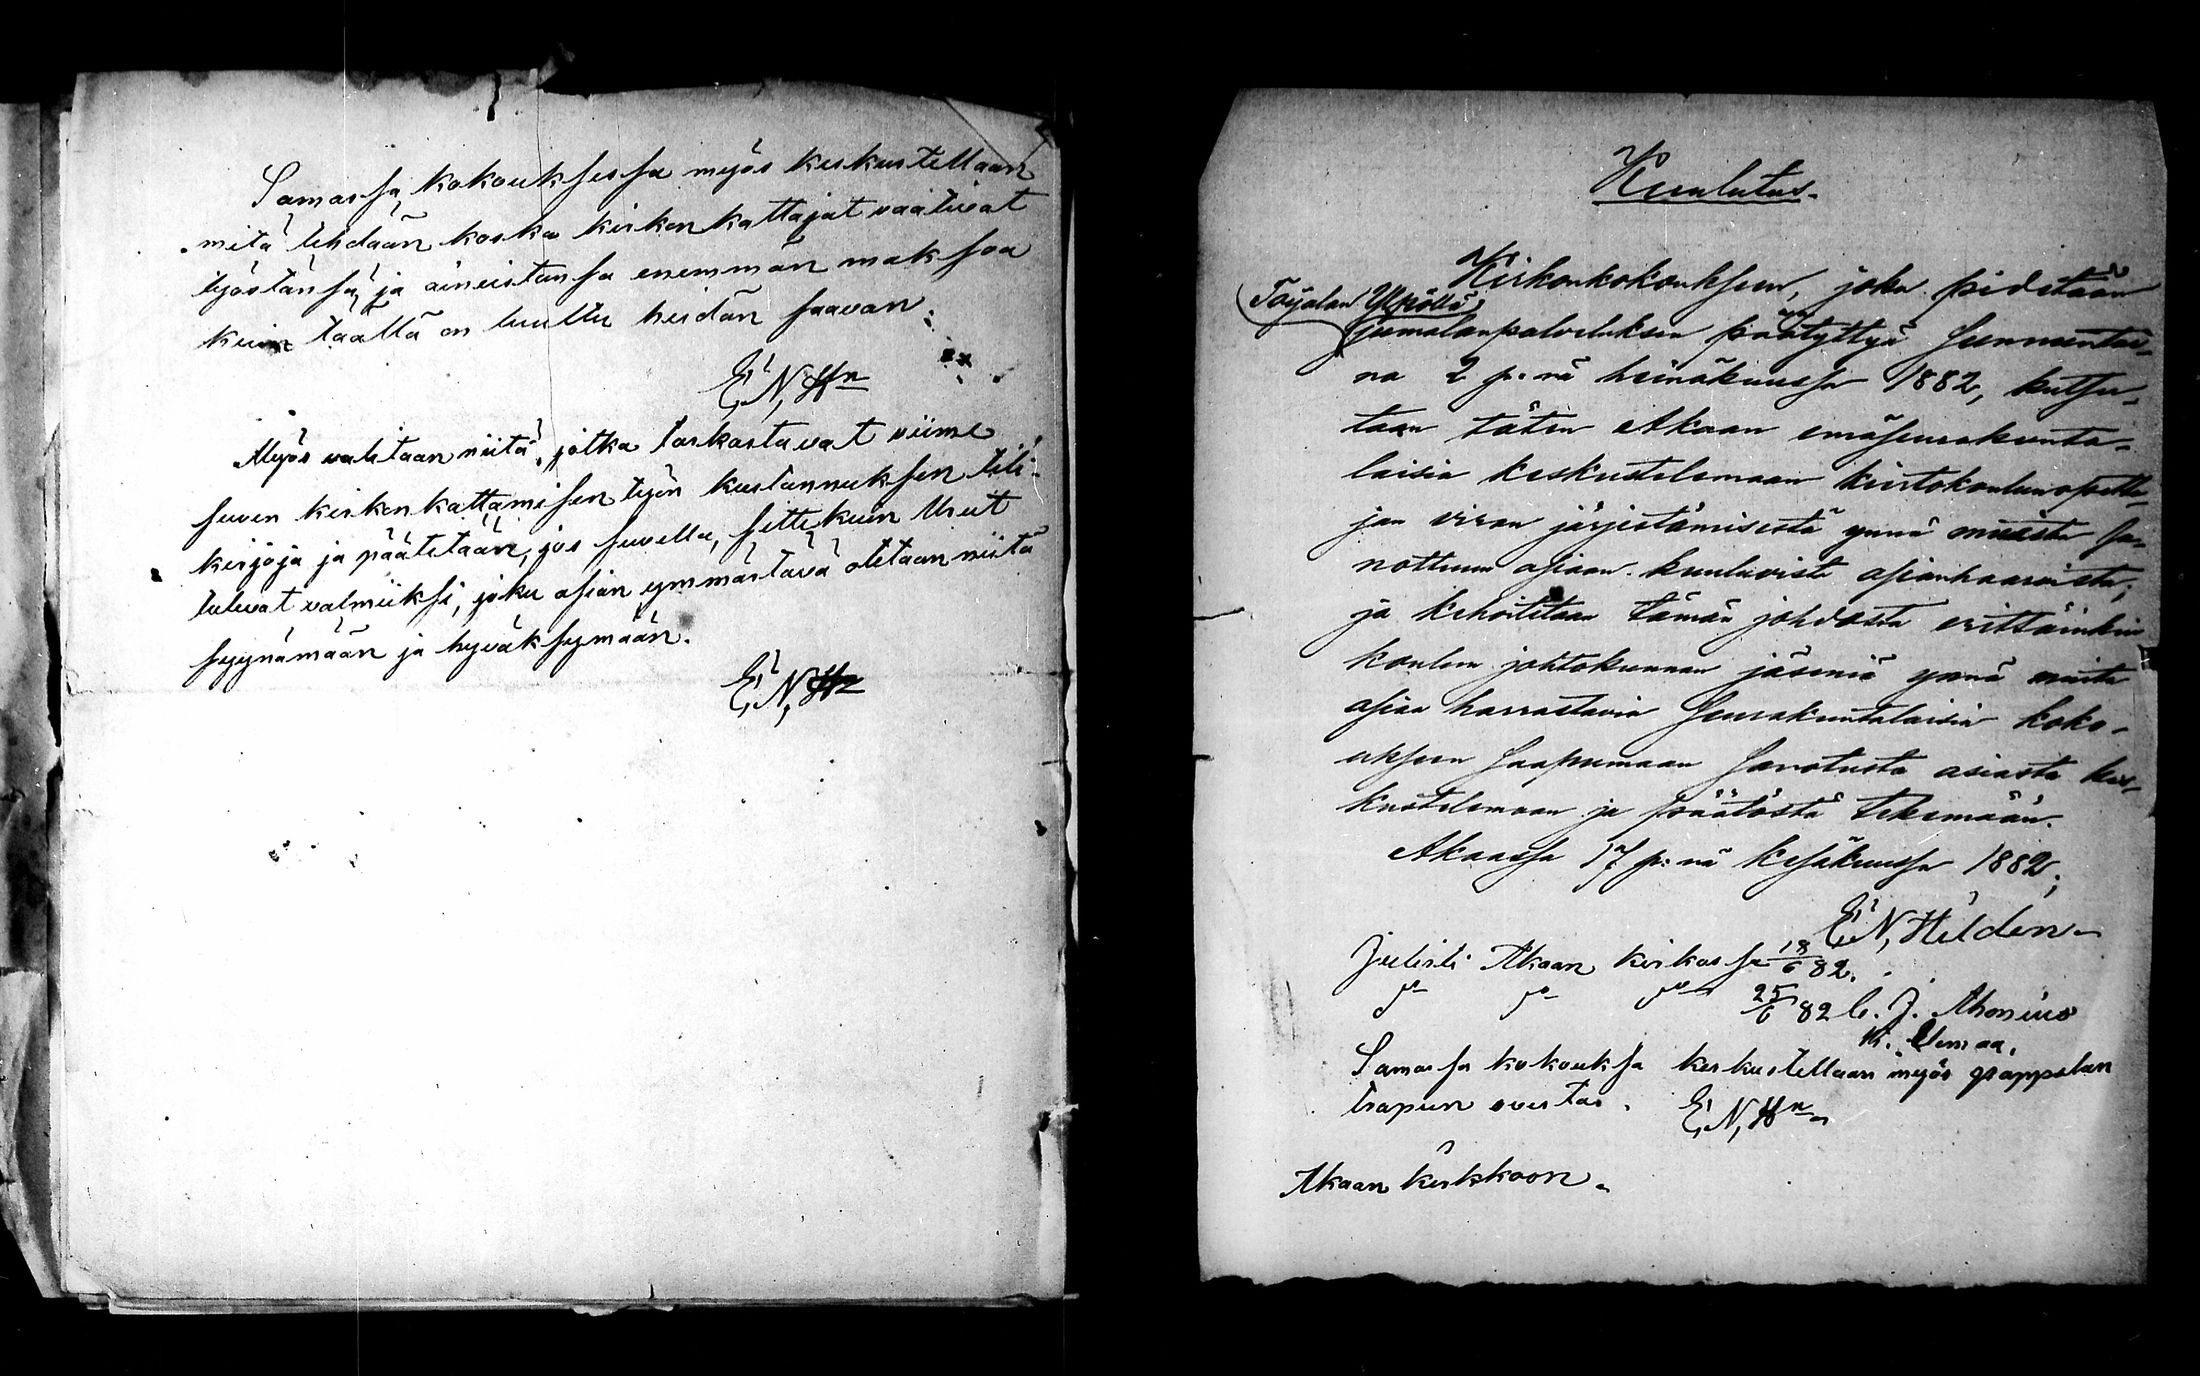 Samassa kokouksessa myös keskustellaan
mitä tehdään koska kirkon kattajat vaativat
työstänsä ja aineistansa enemmän maksoa
kuin täällä on luultu heidän saavan.
E, N, Hn
Myös valitaan niitä, jotka tarkastavat viime
suven kirkon kattamisen työn kustannuksen tili-
kirjoja ja päätetään, jos suvella, sittekuin Urut
tulevat valmiiksi, joku asian ymmärtävä otetaan niitä
syynämään ja hyväksymään.
E, N, Hn
Kuulutus.
Kirkonkokoukseen, joka pidetään
(Toijalan Ylpöllä)
jumalanpalveluksen päätyttyä Sunnuntai-
na 2 p:nä heinäkuussa 1882, kutsu-
taan täten Akaan emäseurakunta-
laisia keskustelemaan kiertokoulunopetta-
jan viran järjestämisestä ynnä muista sa-
nottuun asiaan kuuluvista asianhaaroista;
ja kehoitetaan tämän johdosta erittäinkin
koulun johtokunnan jäseniä ynnä muita
asiaa harrastavia Seurakuntalaisia koko-
ukseen saapumaan sanotusta asiasta kes-
kustelemaan ja päätöstä tekemään.
Akaassa 17 p:nä kesäkuussa 1882,
E, N, Heldén
Julisti Akaan kirkossa 18/6 82.
25/6 82 C. J. Ahonius
K.
Samassa kokouksa keskustellaan myös pappilan
trapun ovesta. E, N, Hn
Akaan kirkkoon.